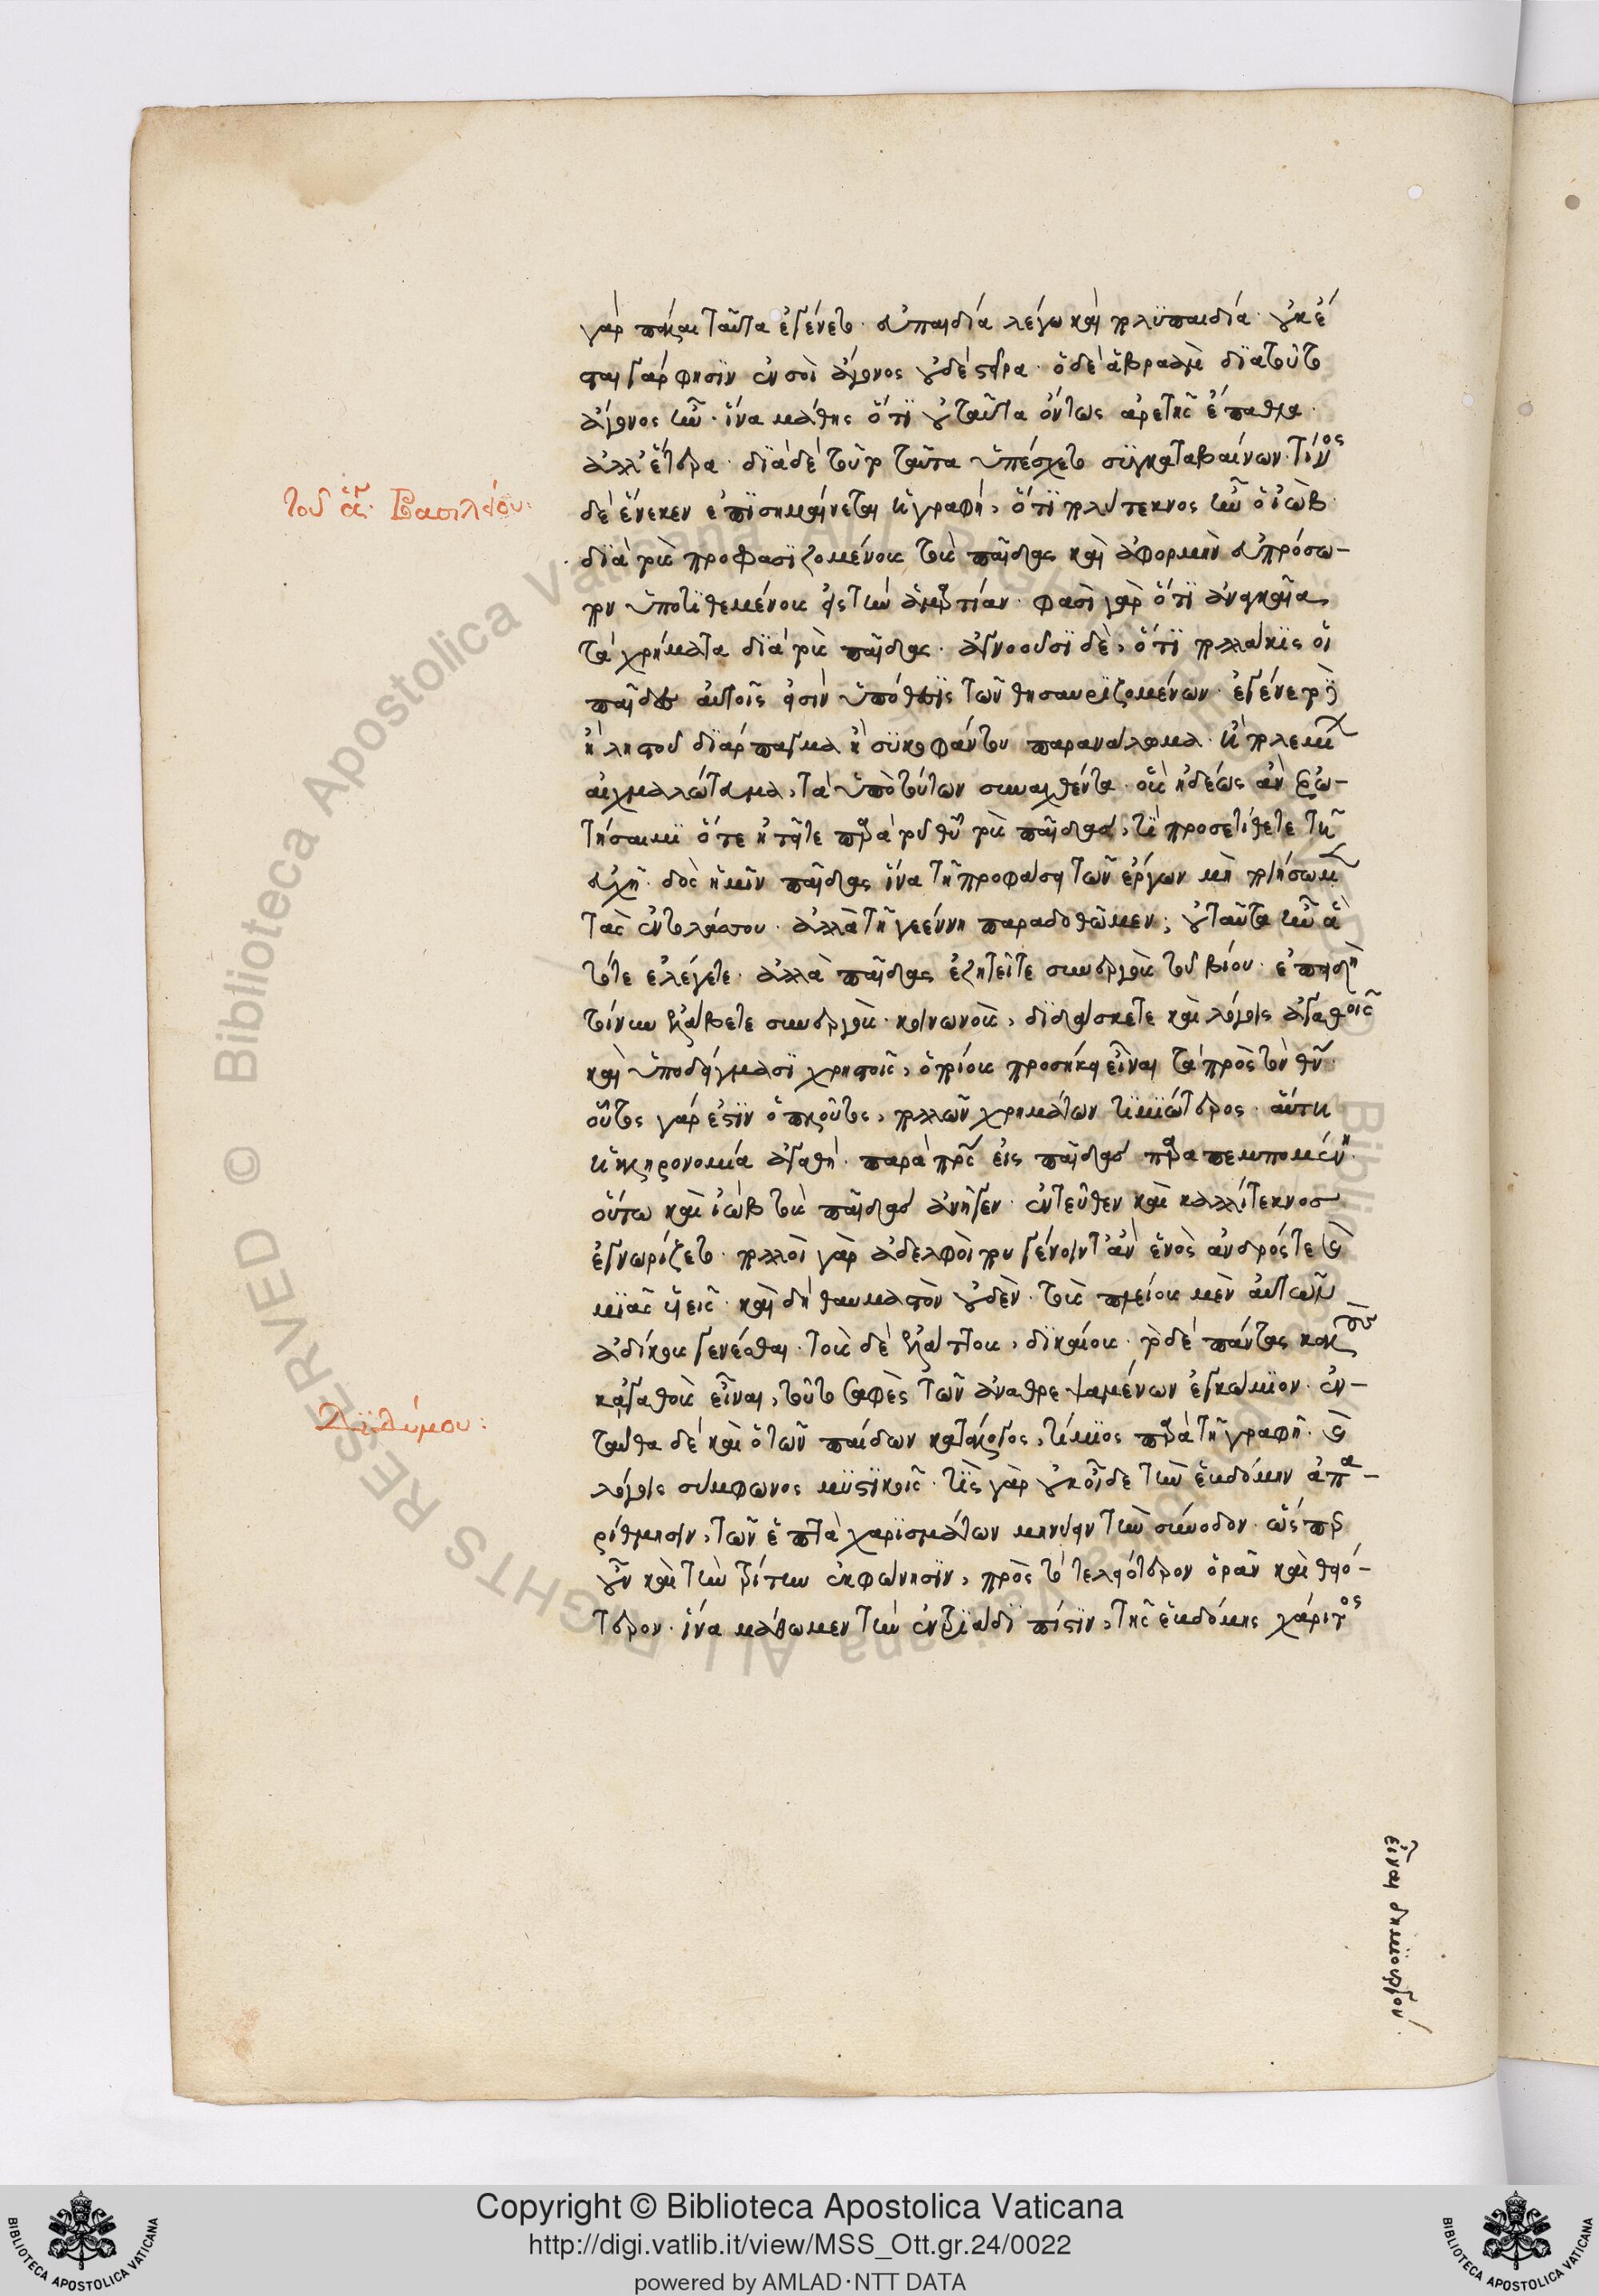 γὰρ πάλαι ταῦτα ἐγένετο· εὐπαιδία λέγω καὶ πολυπαιδία· οὐκ ἔ
σται γὰρ φησὶν ἐν σοὶ ἄγονος οὐδὲ στεῖρα· ὁ δὲ ἀβραὰμ διὰ τοῦτο
ἄγονος ἦν· ἵνα μάθῃς ὅτι οὐ ταῦτα ὄντως ἀρετῆς ἔπαθλα·
ἀλλ' ἕτερα· διὰ δέ τοι ταῦτα ὑπέσχετο συγκαταβαίνων· τίνος
τοῦ ἁγ. Βασιλείου:
δὲ ἕνεκεν ἐπισημαίνεται ἡ γραφή, ὅτι πολύτεκνος ἦν ὁ ἰώβ·
διὰ τοὺς προφασιζομένους τοὺς παῖδας καὶ ἀφορμὴν εὐπρόσω-
πον ὑποτιθεμένους εἰς τὴν ἁμαρτίαν· φασὶ γὰρ ὅτι ἀναγκαῖα
τὰ χρήματα διὰ τοὺς παῖδας· ἀγνοοῦσι δὲ, ὅτι πολλάκις οἱ
παῖδες αὐτοῖς εἰσὶν ὑπόθεσις τῶν θησαυριζομένων· ἐγένετο
ἢ ληστοῦ διάρπαγμα ἢ συκοφάντου παρανάλωμα· ἢ πολεμίων
αἰχμαλώτισμα, τὰ ὑπὸ τούτων συναχθέντα· οὓς ἡδέως ἂν ἐρω-
τήσαιμι ὅτε ᾐτεῖτε παρὰ τοῦ θῦ τοὺς παῖδας, τί προσετίθετε τῇ
εὐχῇ· δὸς ἡμῖν παῖδας ἵνα τῇ προφάσει τῶν ἔργων μὴ ποιήσωμεν
τὰς ἐντολάς σου· ἀλλὰ τῇ γεέννῃ παραδοθῶμεν; οὐ ταῦτα ἦν ἃ
τότε ἐλέγετε· ἀλλὰ παῖδας ἐζητεῖτε συνεργοὺς τοῦ βίου· ἐπειδὴ
τοίνυν ἐλάβετε συνεργοὺς κοινωνοὺς, διδάσκετε καὶ λόγοις ἀγαθοῖς
καὶ ὑποδείγμασι χρηστοῖς, ὁποίους προσήκει εἶναι τὰ πρὸς τὸν θν·
οὗτος γάρ ἐστιν ὁ πλοῦτος, πολλῶν χρημάτων τιμιώτερος· αὕτη
ἡ κληρονομία ἀγαθὴ· παρὰ πρς εἰς παῖδας παραπεμπομένη·
οὕτω καὶ ἰὼβ τοὺς παῖδας ἀνῆγεν· ἐντεῦθεν καὶ καλλίτεκνος
ἐγνωρίζετο· πολλοὶ γὰρ ἀδελφοί που γένοιντ' ἂν ἑνὸς ἀνδρός τε καὶ
μιᾶς
καὶ δὴ θαυμαστὸν οὐδὲν· τοὺς πλείους μὲν αὐτῶν
ἀδίκους γενέσθαι· τοὺς δὲ ἐλάττους, δικαίους· τὸ δὲ πάντας καλοὺς
κἀγαθοὺς εἶναι, τοῦτο σαφὲς τῶν ἀναθρεψαμένων ἐγκώμιον· ἐν-
Διδύμου:
ταῦθα δὲ καὶ ὁ τῶν παίδων κατάλογος, τίμιος παρὰ τῇ γραφῇ· καὶ
λόγοις σύμφωνος μυστικοῖς· τίς γὰρ οὐκ οἶδε τὴν ἑβδόμην ἀπα-
ρίθμησιν, τῶν ἑπτὰ χαρισμάτων μηνύειν τὴν σύνοδον· ὥσπερ
οὖν καὶ τὴν τρίτην ἐκφώνησιν, πρὸς τὸ τελειότερον ὁρᾶν καὶ θειό-
τερον· ἵνα μάθωμεν τὴν ἐν τριάδι πίστιν, τῆς ἑβδόμης χάριτος
εἶναι δημιουργόν